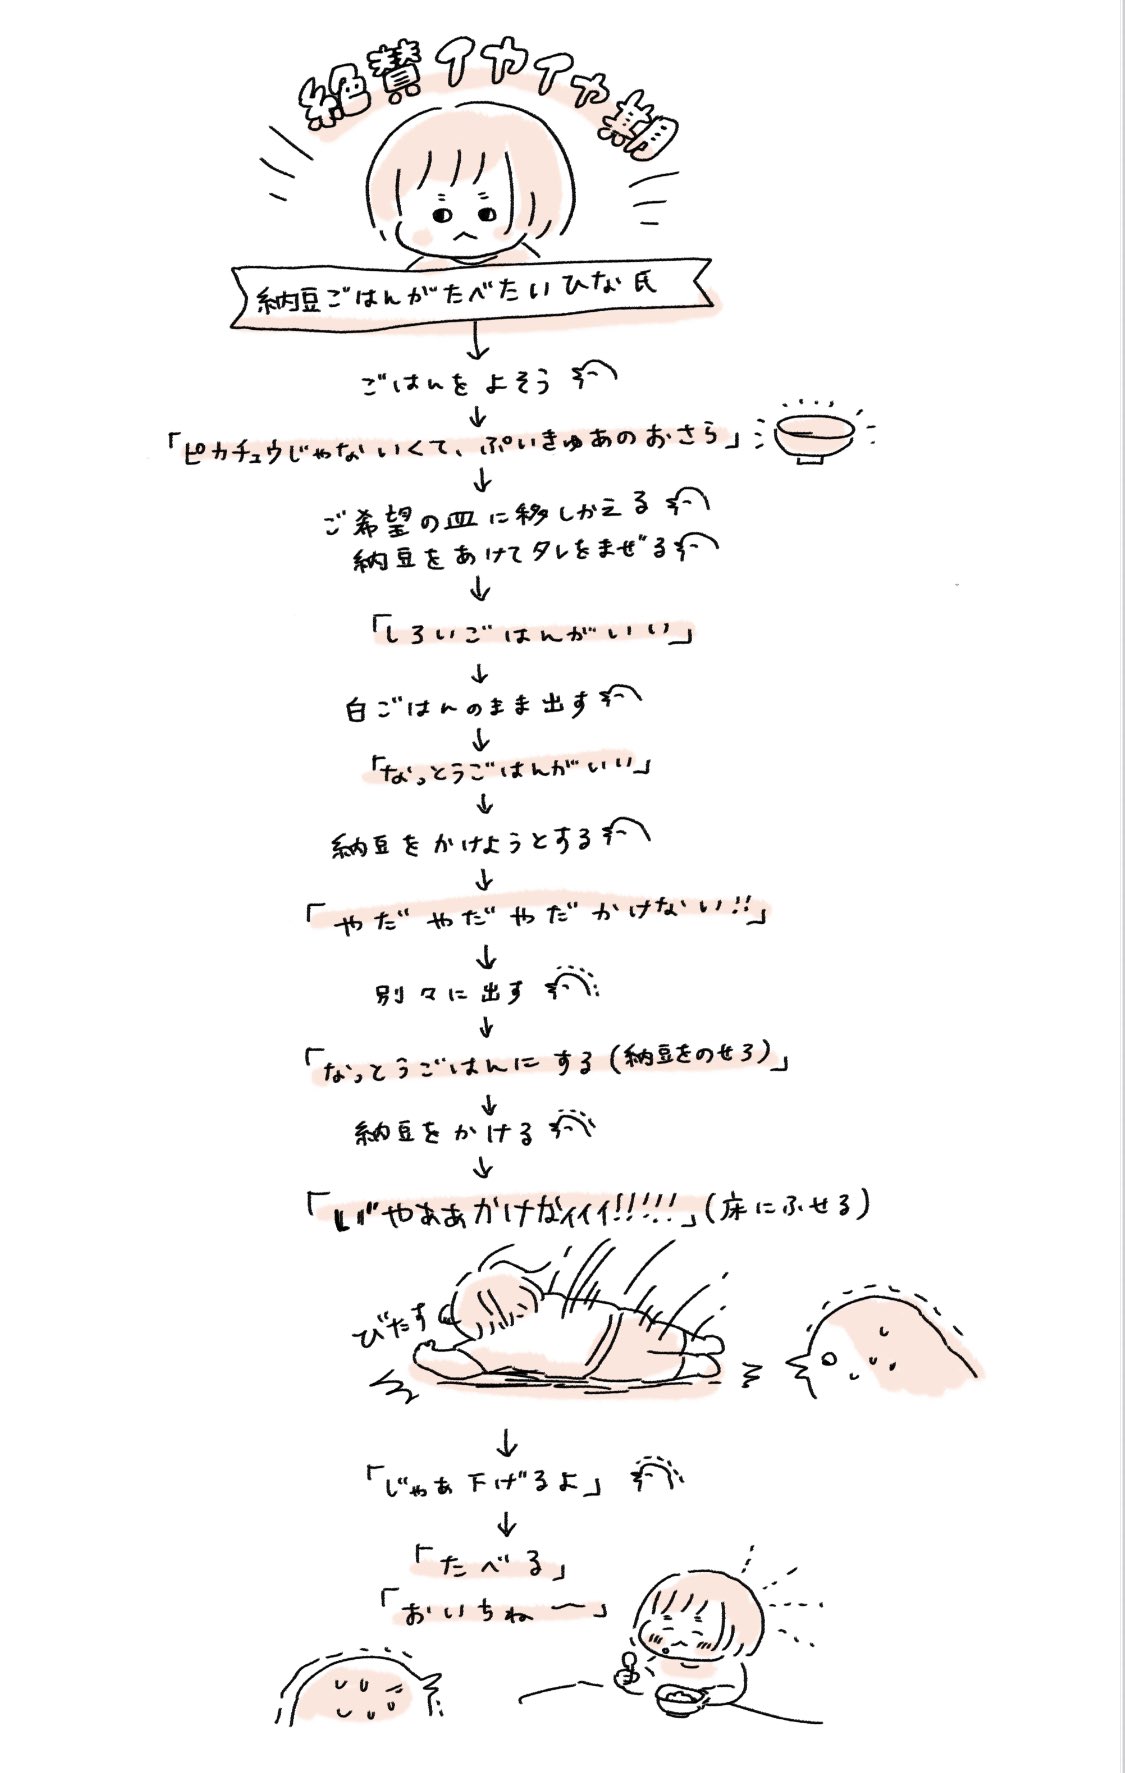 絶賛イヤイヤ期
納豆ごはんがたべたいひな氏
ごはんをよそう
「ピカチュウじゃないくて、ぷいきゅあのおさら」
ご希望の皿に移しかえる
納豆をあけてタレをまぜる
「しろいごはんがいい」
白ごはんのまま出す
「なっとうごはんがいい」
納豆をかけようとする
「やだやだやだかけない!!」
別々に出す
「なっとうごはんにする(納豆をのせろ)」
納豆をかける
「い゙やああかけなィィィ!!!!!」(床にふせる)
びたす
「じゃあ下げるよ」
「たべる」
「おいちね〜」